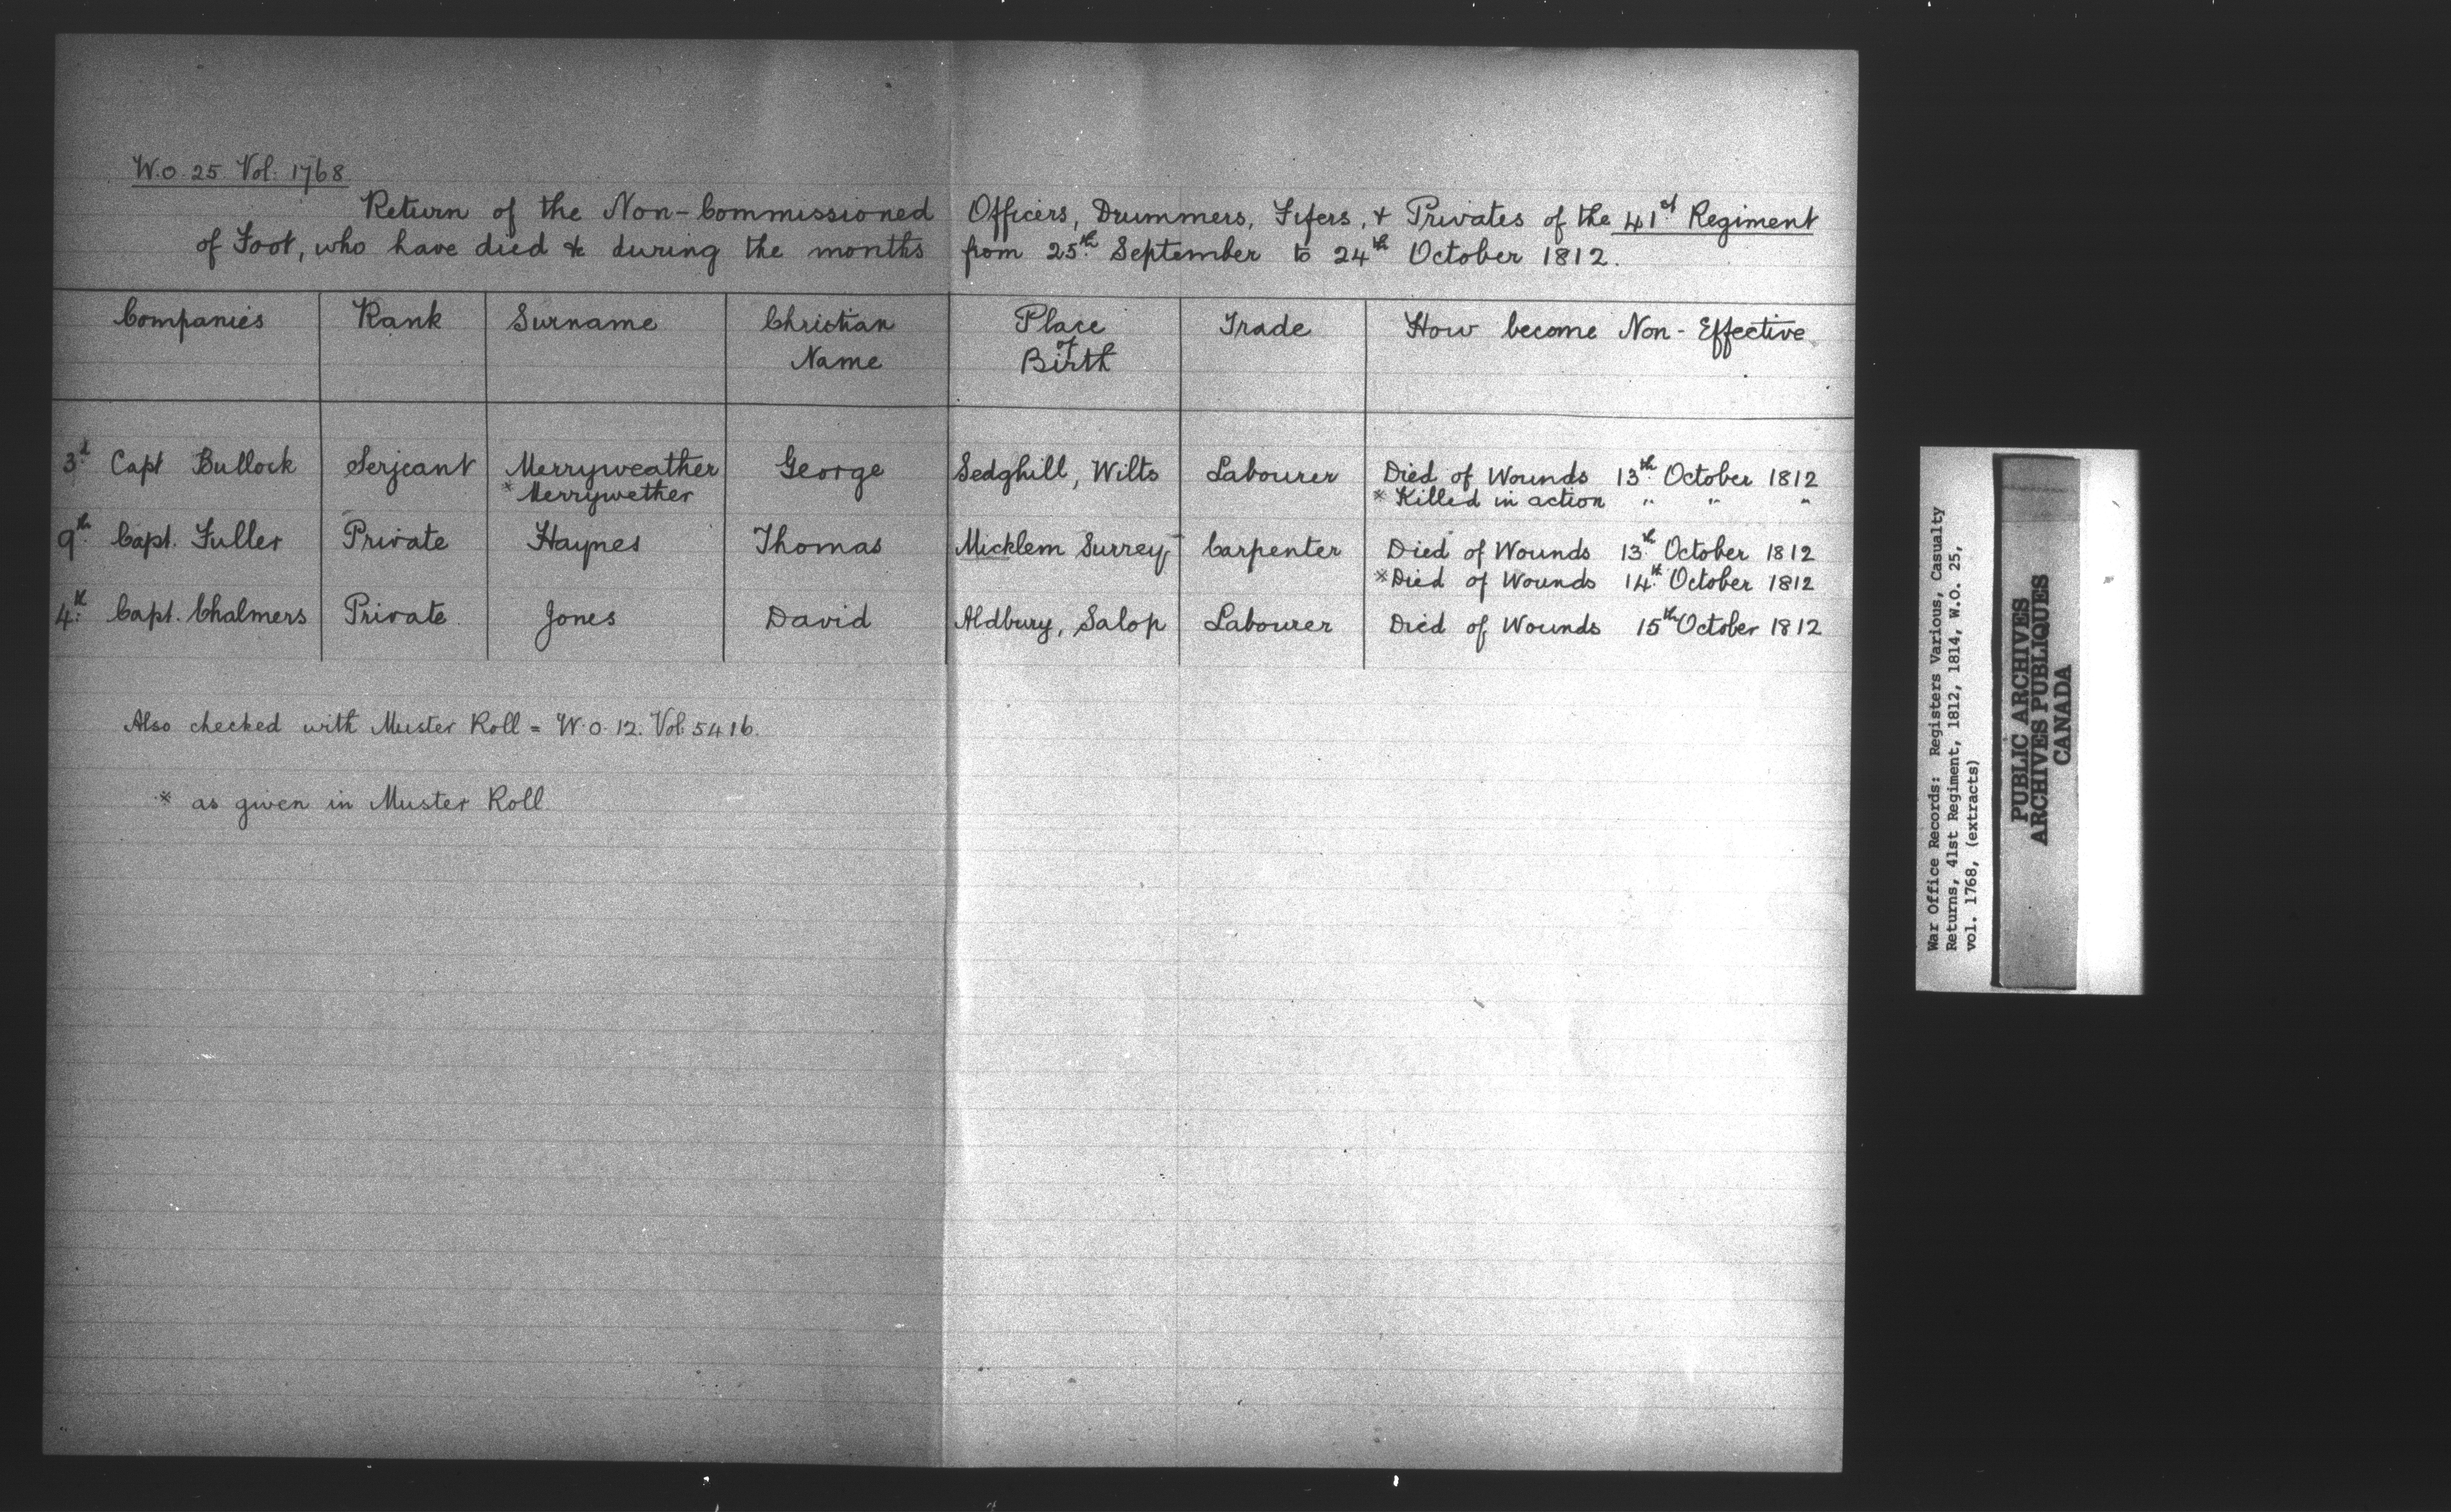 W.O. 25. Vol: 1768.
Return of the Non-Commissioned Officers, Drummers, Fifers, & Privates of the 41st Regiment
of Foot, who have died &c during the months from 25th September to 24th October 1812.
Companies Rank Surname Christian Name Place of Birth Trade How become Non-Effective
3d Capt Bullock Serjeant Merryweather George Sedghill, Wilts Labourer Died of Wounds 13th October 1812
* Merrywether * Killed in action " " "
9th Capt. Fuller Private Haynes Thomas Micklem Surrey Carpenter Died of Wounds 13th October 1812
* Died of Wounds 14th October 1812
4th Capt. Chalmers Private Jones David Aldbury, Salop Labourer Died of Wounds 15th October 1812
Also checked with Muster Roll = W.O. 12. Vol. 5416.
* as given in Muster Roll
War Office Records: Registers Various, Casualty
Returns, 41st Regiment, 1812, 1814, W.O. 25,
vol. 1768, (extracts)
PUBLIC ARCHIVES
ARCHIVES PUBLIQUES
CANADA